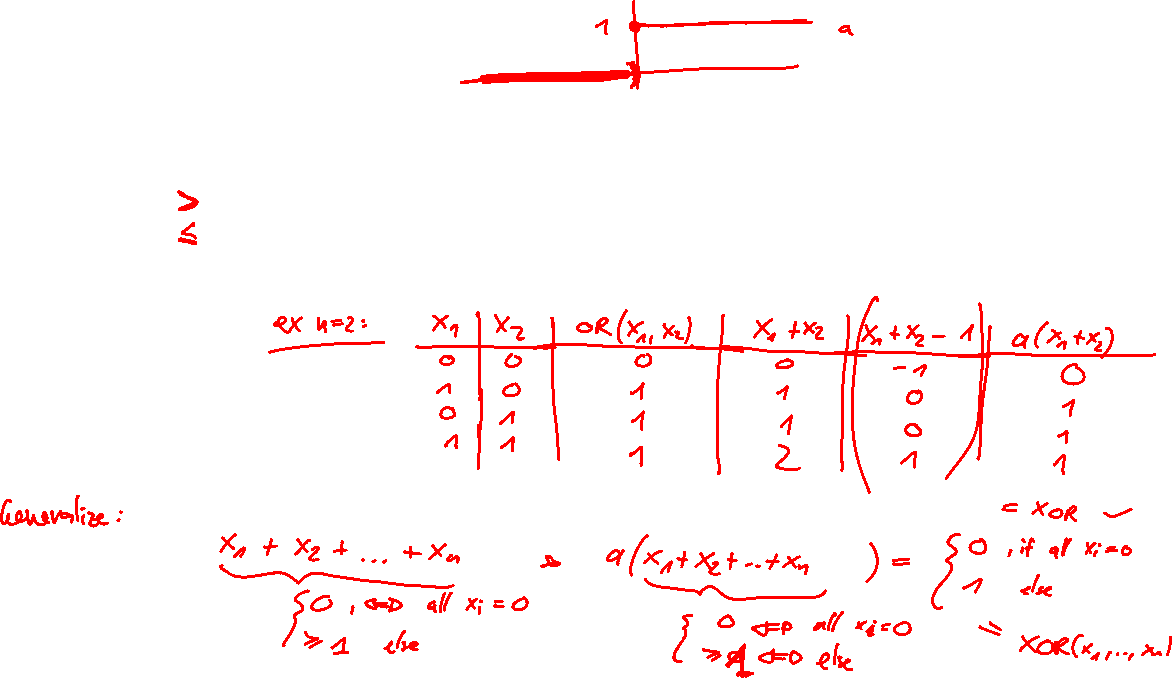 1 a
>
≤
ex n=2: x₁ | x₂ | OR(x₁, x₂) | x₁ + x₂ | (x₁ + x₂ - 1) | a(x₁ + x₂)
0 | 0 | 0 | 0 | -1 | 0
1 | 0 | 1 | 1 | 0 | 1
0 | 1 | 1 | 1 | 0 | 1
1 | 1 | 1 | 2 | 1 | 1
= XOR ✓
Generalize:
x₁ + x₂ + ... + xₙ ⇒ a(x₁ + x₂ + ... + xₙ) = { 0, if all xᵢ=0
1 else
{ 0, ⇔ all xᵢ = 0
≥ 1 else
{ 0 ⇔ all xᵢ=0
≥ 1 ⇔ else
= XOR(x₁, ..., xₙ)